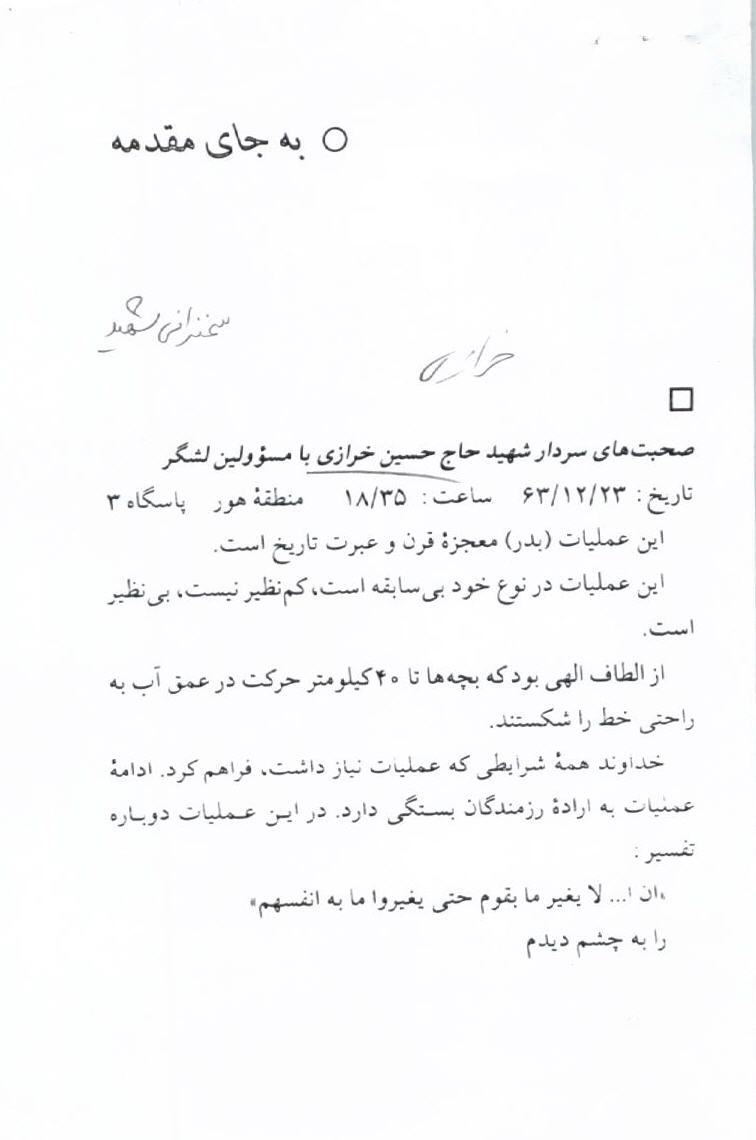 ○ به جای مقدمه
سخنرانی شهید
خرازی
□
صحبت‌های سردار شهید حاج حسین خرازی با مسؤولین لشگر
تاریخ: ۶۳/۱۲/۲۳ ساعت: ۱۸/۳۵ منطقهٔ هور پاسگاه ۳
این عملیات (بدر) معجزهٔ قرن و عبرت تاریخ است.
این عملیات در نوع خود بی‌سابقه است، کم‌نظیر نیست، بی‌نظیر
است.
از الطاف الهی بود که بچه‌ها تا ۴۰ کیلومتر حرکت در عمق آب به
راحتی خط را شکستند.
خداوند همهٔ شرایطی که عملیات نیاز داشت، فراهم کرد. ادامهٔ
عملیات به ارادهٔ رزمندگان بستگی دارد. در این عملیات دوباره
تفسیر:
«ان ا... لا یغیر ما بقوم حتی یغیروا ما به انفسهم»
را به چشم دیدم